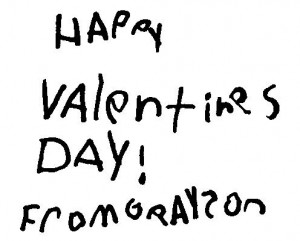 HAppy
VAlentines
DAY!
FromGRAYSon